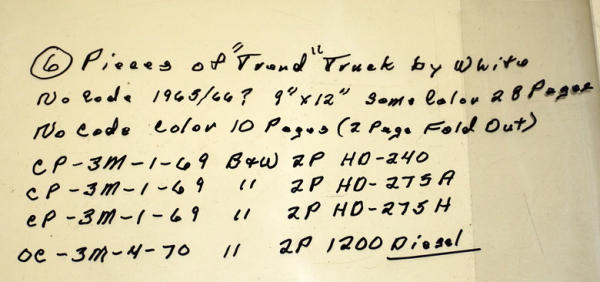 ⑥ Pieces of "Trend" Truck by White
No Code 1965/66? 9" x 12" Some Color 28 Pages
No Code Color 10 Pages (2 Page Fold Out)
CP-3M-1-69 B&W 2P HD-240
CP-3M-1-69 " 2P HD-275A
CP-3M-1-69 " 2P HD-275H
OC-3M-4-70 " 2P 1200 Diesel